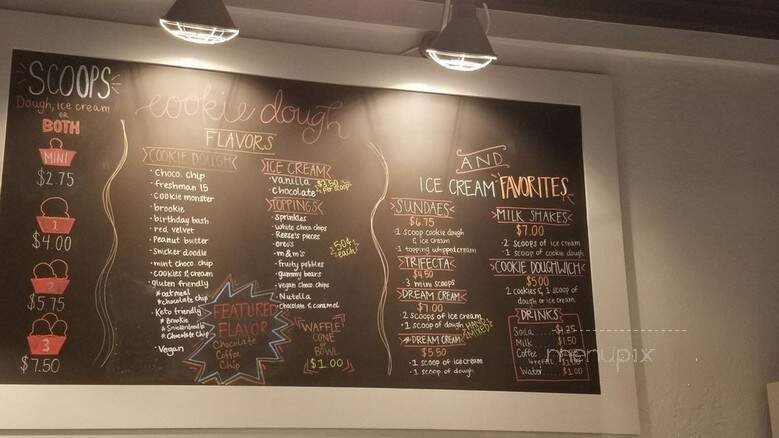 SCOOPS
Dough, ice cream
OR
BOTH
MINI
$2.75
1
$4.00
2
$5.75
3
$7.50
cookie dough
FLAVORS
COOKIE DOUGH
· choco chip
· freshman 15
· cookie monster
· brookie
· birthday bash
· red velvet
· Peanut butter
· snicker doodle
· mint choco chip
· cookies & cream
· gluten friendly
* oatmeal
* chocolate chip
· Keto friendly
* Brookie
* Snickerdoodle
* Chocolate Chip
· Vegan
ICE CREAM
· vanilla
· chocolate
$3.50
per scoop
TOPPINGS
· sprinkles
· white choco chips
· Reese's pieces
· oreo's
· m&m's
· Fruity pebbles
· gummy bears
· vegan choco chips
· Nutella
· Chocolate & caramel
50¢
each
FEATURED
FLAVOR
Chocolate
Coffee
Chip
WAFFLE
CONE
or
BOWL
$1.00
AND
ICE CREAM FAVORITES
SUNDAES
$6.75
· 1 scoop cookie dough
& ice cream
· 1 topping whipped cream
TRIFECTA
$4.50
· 3 mini scoops
DREAM CREAM
$7.00
· 2 scoops of ice cream
· 1 scoop of dough
DREAM CREAM
$5.50
· 1 scoop of ice cream
· 1 scoop of dough
MILK SHAKES
$7.00
· 2 scoops of ice cream
· 1 scoop of cookie dough
COOKIE DOUGHWICH
$5.00
2 cookies & 1 scoop of
dough or ice cream
DRINKS
Soda $1.25
Milk $1.50
Coffee
Water $1.00
menupix